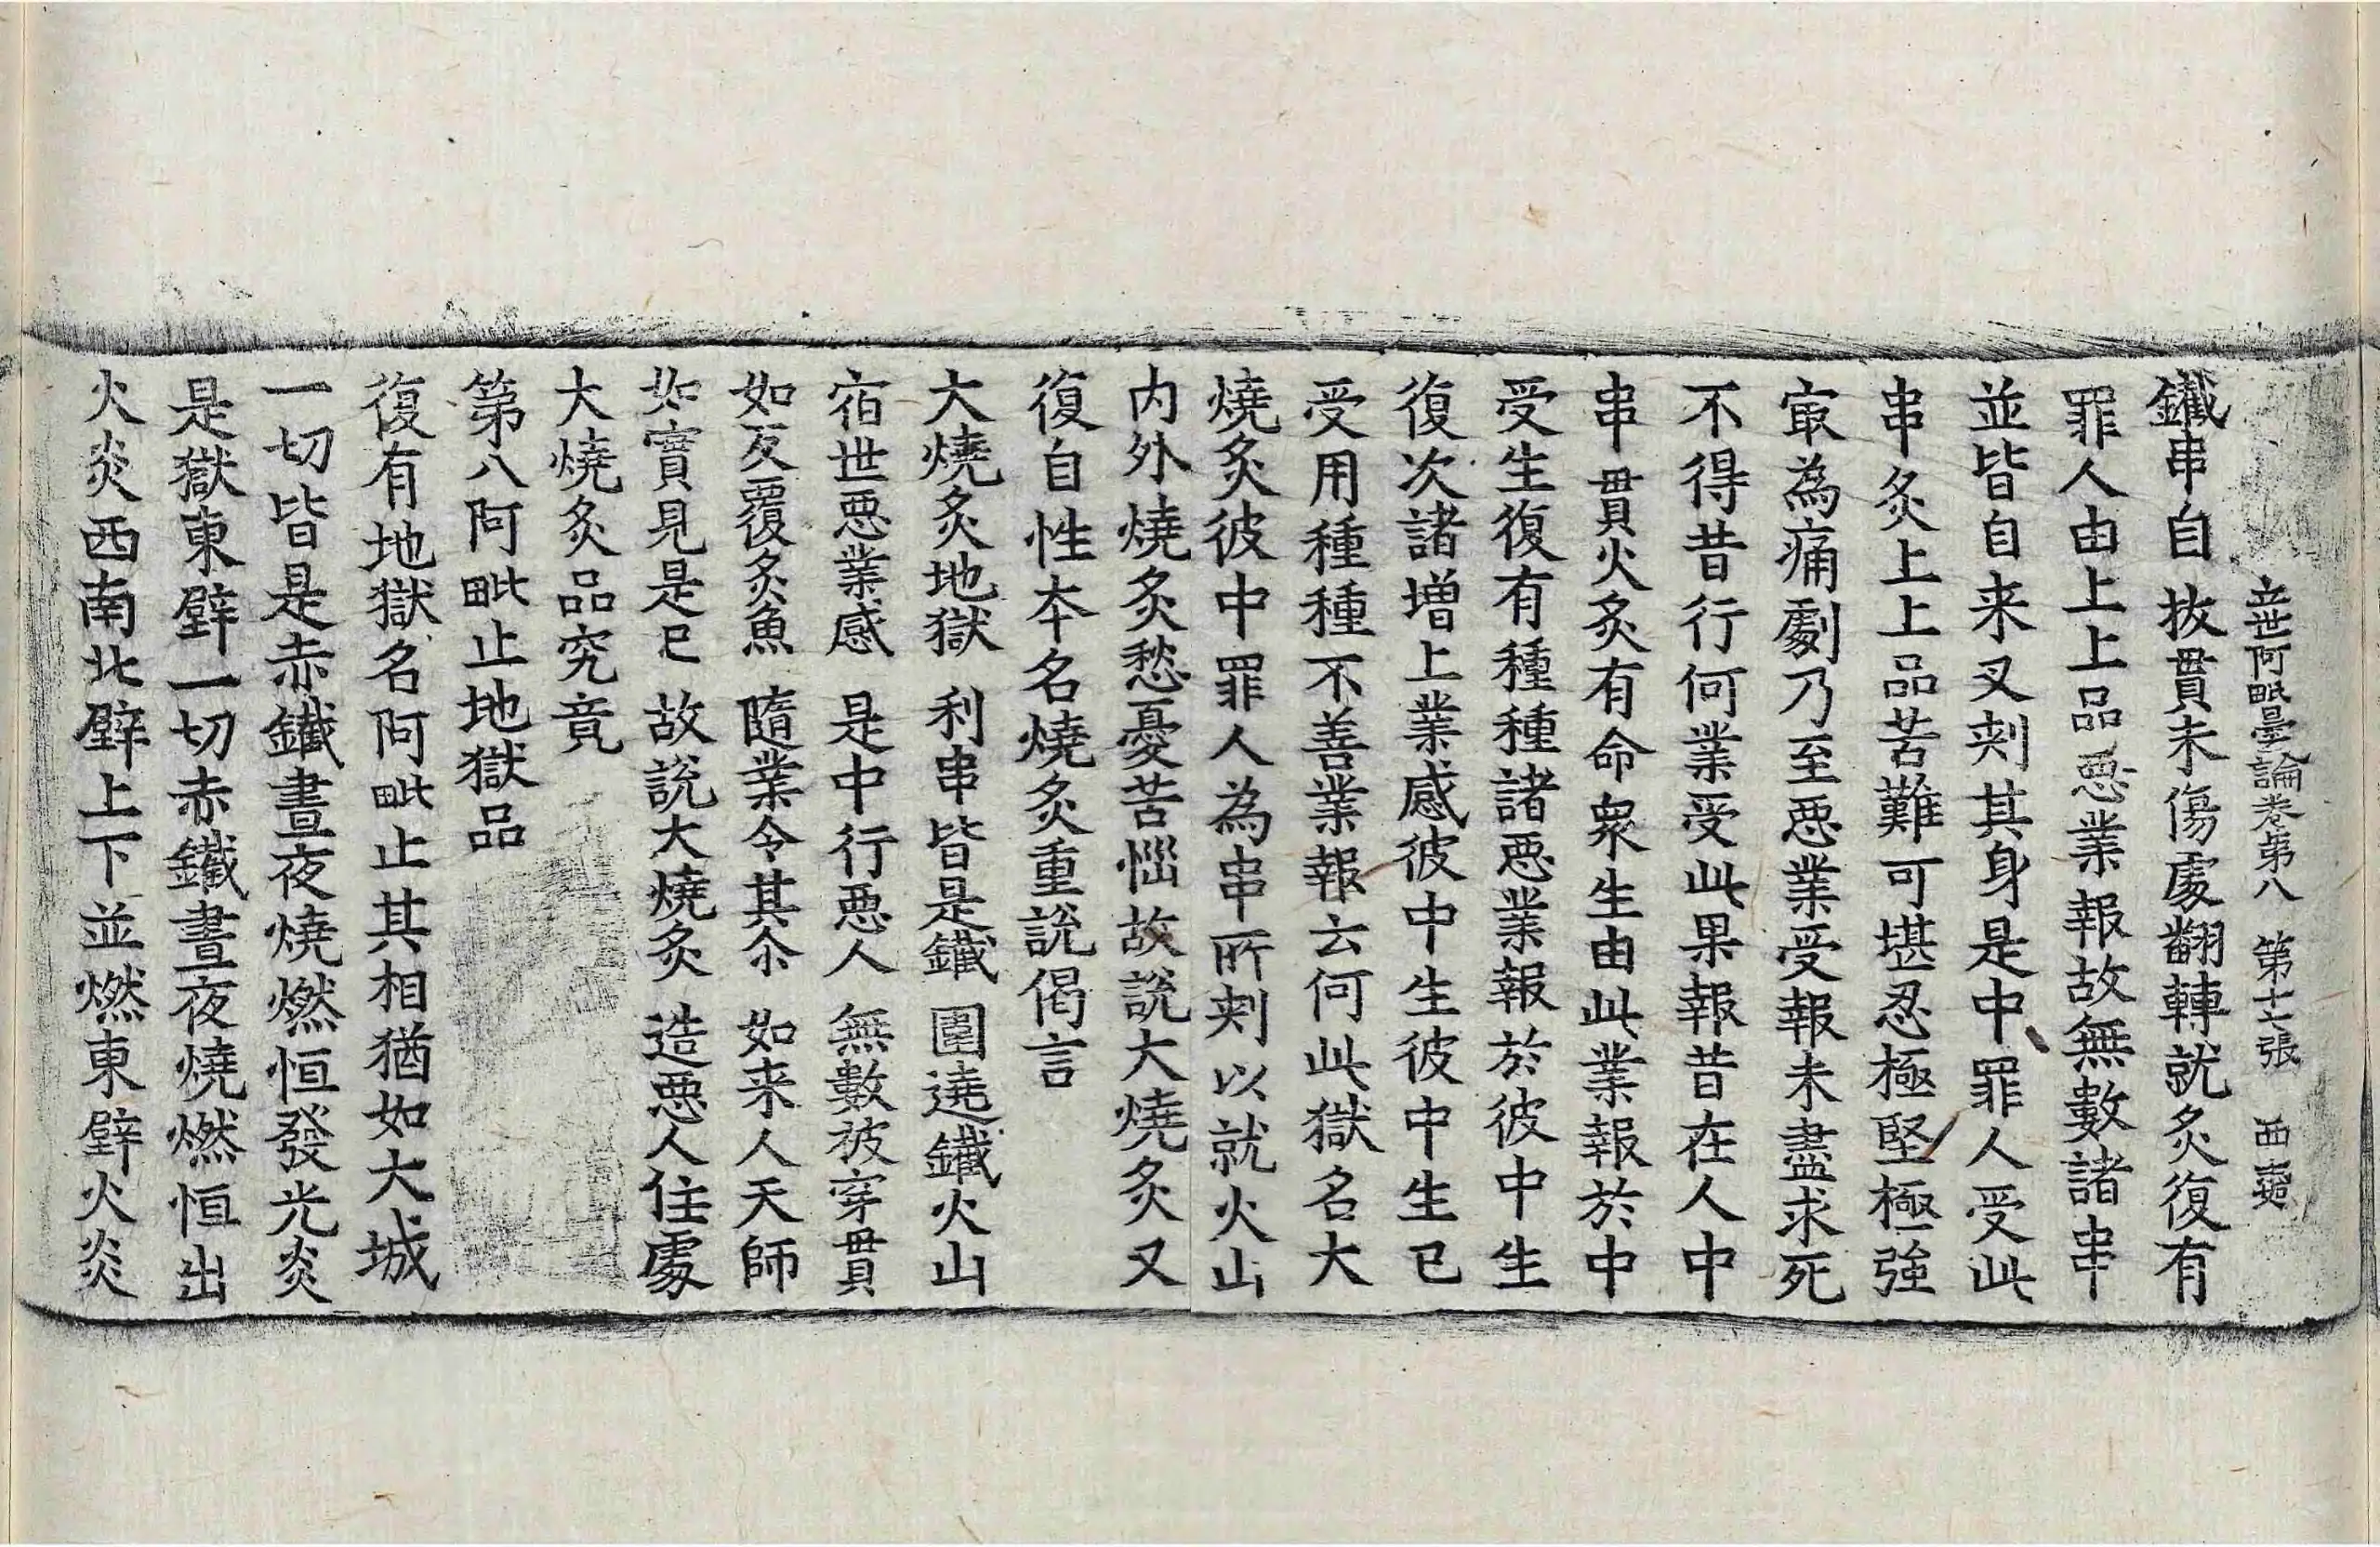 立世阿毗曇論卷第八 第十七張
鐵串自拔貫未傷處翻轉就炙復有
罪人由上上品惡業報故無數諸串
並皆自来叉刾其身是中罪人受此
串炙上上品苦難可堪忍極堅極強
㝡為痛劇乃至惡業受報未盡求死
不得昔行何業受此果報昔在人中
串貫火炙有命衆生由此業報於中
受生復有種種諸惡業報於彼中生
復次諸增上業感彼中生彼中生已
受用種種不善業報云何此獄名大
燒炙彼中罪人為串所刾以就火山
内外燒炙愁憂苦惱故說大燒炙又
復自性本名燒炙重說偈言
大燒炙地獄 利串皆是鐵 圍遶鐵火山
宿世惡業感 是中行惡人 無數被穿貫
如反覆炙魚 隨業令其尒 如来人天師
如實見是已 故說大燒炙 造惡人住處
大燒炙品究竟
第八阿毗止地獄品
復有地獄名阿毗止其相猶如大城
一切皆是赤鐵晝夜燒燃恒發光炎
是獄東壁一切赤鐵晝夜燒燃恒出
火炎西南北壁上下並燃東壁火炎